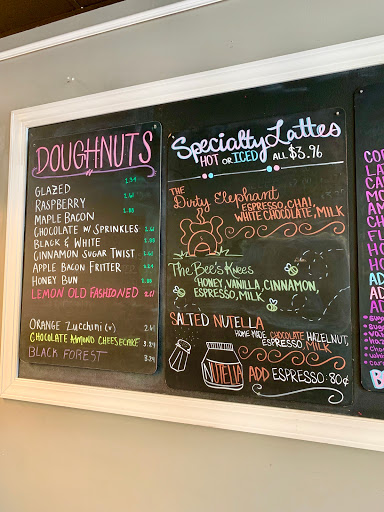 DOUGHNUTS
GLAZED
RASPBERRY
MAPLE BACON 1.88
CHOCOLATE w/ SPRINKLES
BLACK & WHITE 1.88
CINNAMON SUGAR TWIST
APPLE BACON FRITTER
HONEY BUN 1.88
LEMON OLD FASHIONED
ORANGE Zucchini (v)
CHOCOLATE ALMOND CHEESECAKE 3.24
BLACK FOREST 3.24
Specialty Lattes
HOT OR ICED ALL $3.96
THE
Dirty Elephant
ESPRESSO, CHAI,
WHITE CHOCOLATE, MILK
The Bee's Knees
HONEY, VANILLA, CINNAMON,
ESPRESSO, MILK
SALTED NUTELLA
HOME MADE CHOCOLATE HAZELNUT,
ESPRESSO, MILK
NUTELLA
ADD ESPRESSO: 80¢